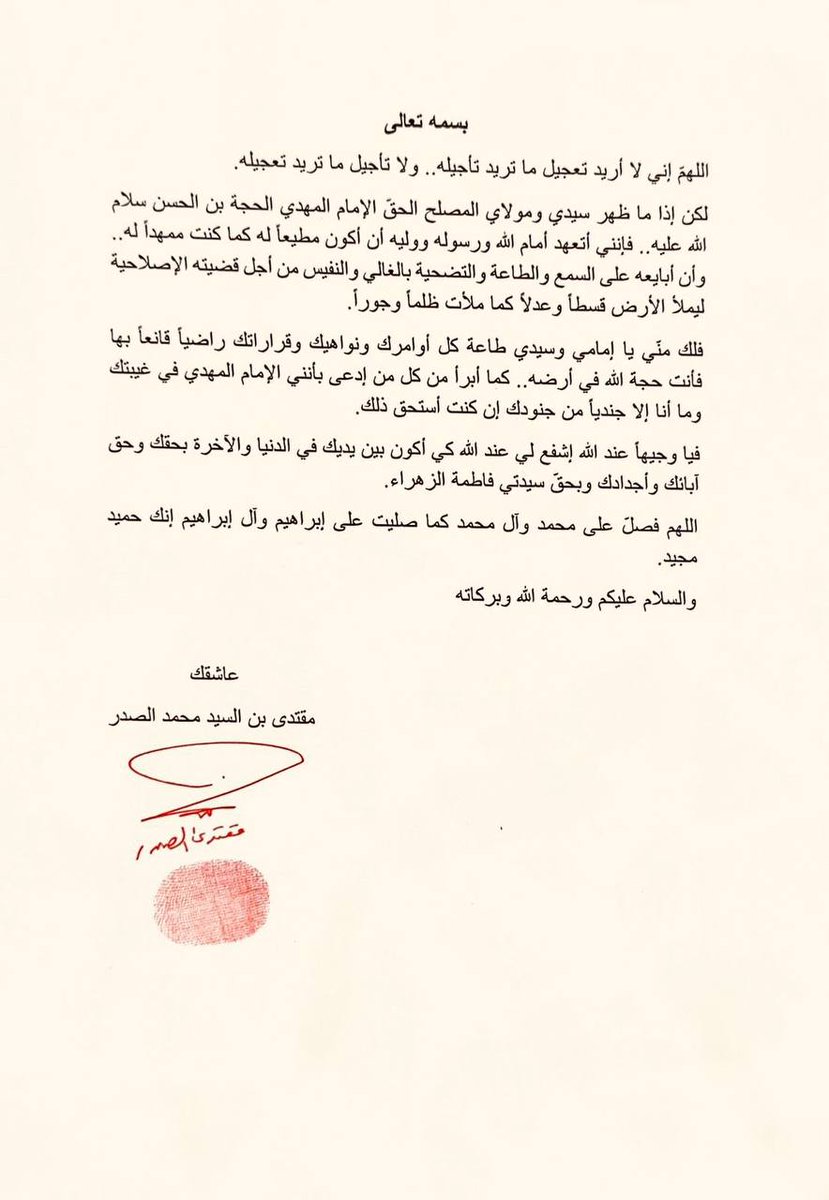 بسمه تعالى
اللهمّ إني لا أريد تعجيل ما تريد تأجيله.. ولا تأجيل ما تريد تعجيله.
لكن إذا ما ظهر سيدي ومولاي المصلح الحقّ الإمام المهدي الحجة بن الحسن سلام
الله عليه.. فإنني أتعهد أمام الله ورسوله ووليه أن أكون مطيعاً له كما كنت ممهداً له..
وأن أبايعه على السمع والطاعة والتضحية بالغالي والنفيس من أجل قضيته الإصلاحية
ليملأ الأرض قسطاً وعدلاً كما ملأت ظلماً وجوراً.
فلك منّي يا إمامي وسيدي طاعة كل أوامرك ونواهيك وقراراتك راضياً قانعاً بها
فأنت حجة الله في أرضه.. كما أبرأ من كل من إدعى بأنني الإمام المهدي في غيبتك
وما أنا إلا جندياً من جنودك إن كنت أستحق ذلك.
فيا وجيهاً عند الله إشفع لي عند الله كي أكون بين يديك في الدنيا والآخرة بحقك وحق
آبائك وأجدادك وبحقّ سيدتي فاطمة الزهراء.
اللهم فصلّ على محمد وآل محمد كما صليت على إبراهيم وآل إبراهيم إنك حميد
مجيد.
والسلام عليكم ورحمة الله وبركاته
عاشقك
مقتدى بن السيد محمد الصدر
مقتدى الصدر